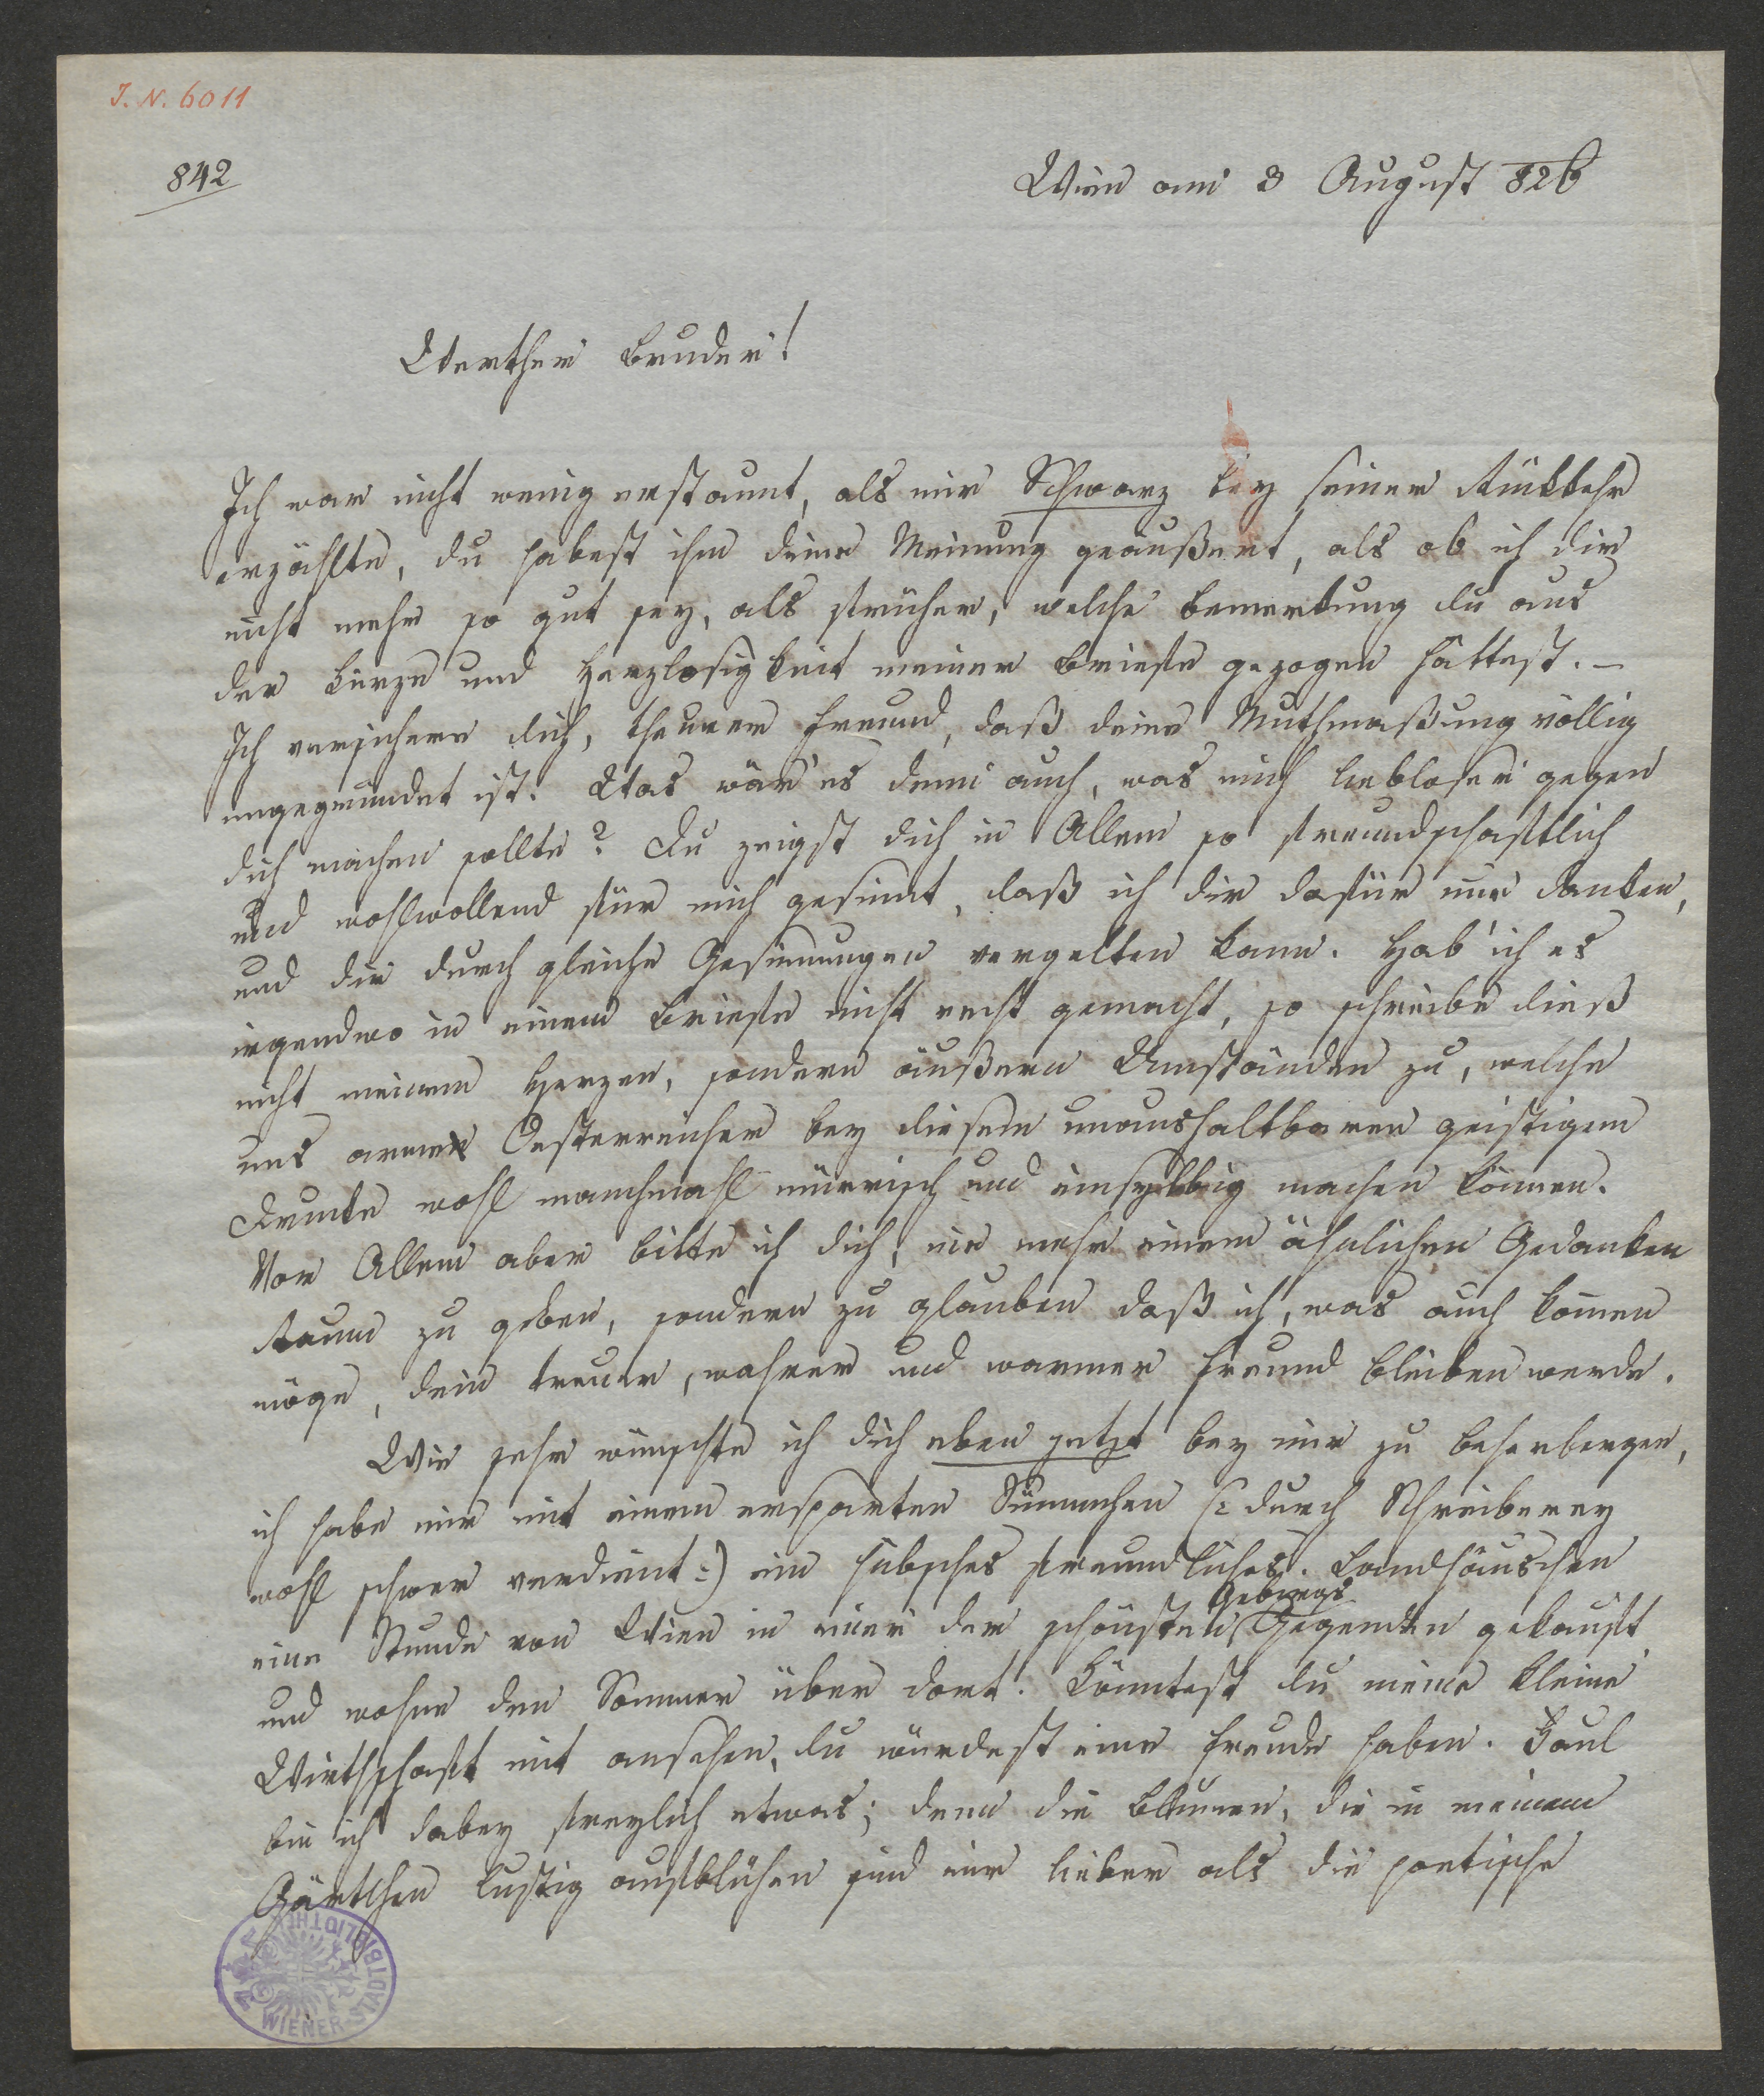 J. N. 6011
842
Wien am 3 August 826
Werther Bruder!
Ich war nicht wenig erstaunt, als mir Schwarz bey seiner Rükkehr
erzählte, du habest ihm deine Meinung geäußert, als ob ich dir
nicht mehr so gut sey, als früher, welche Bemerkung du aus
der Kürze und Herzlosigkeit meiner Briefe gezogen hättest. –
Ich versichere dich, theurer Freund, daß deine Muthmaßung völlig
ungegründet ist. Was wär' es denn auch, was mich liebloser gegen
dich machen sollte? Du zeigst dich in Allem so freundschaftlich
und wohlwollend für mich gesinnt, daß ich dir dafür nur danken,
und dir durch gleiche Gesinnungen vergelten kann. Hab' ich es
irgendwo in einem Briefe nicht recht gemacht, so schreibe dieß
nicht meinem Herzen, sondern äußern Umständen zu, welche
uns arme Oesterreicher bey diesem unaushaltbaren geistigem
Drucke wohl manchmahl mürrisch und einsylbig machen können.
Vor Allem aber bitte ich dich, nie mehr einem ähnlichen Gedanken
Raum zu geben, sondern zu glauben daß ich, was auch komen
möge, dein treuer, wahrer und warmer Freund bleiben werde.
Wie sehr wünschte ich dich eben jetzt bey mir zu beherbergen,
ich habe mir mit einem ersparten Sümmchen (: durch Schreiberey
wohl schwer verdient :) ein hübsches freundliches Landhäuschen
eine Stunde von Wien in einer der schönsten Gebirgs Gegenden gekauft
und wohne den Sommer über dort. Könntest du meine kleine
Wirthschaft mit ansehen, du würdest eine Freude haben. Faul
bin ich dabey freylich etwas; denn die Blumen, die in meinem
Gärtchen lustig aufblühen sind mir lieber als die poetische
WIENER STADTBIBLIOTHEK